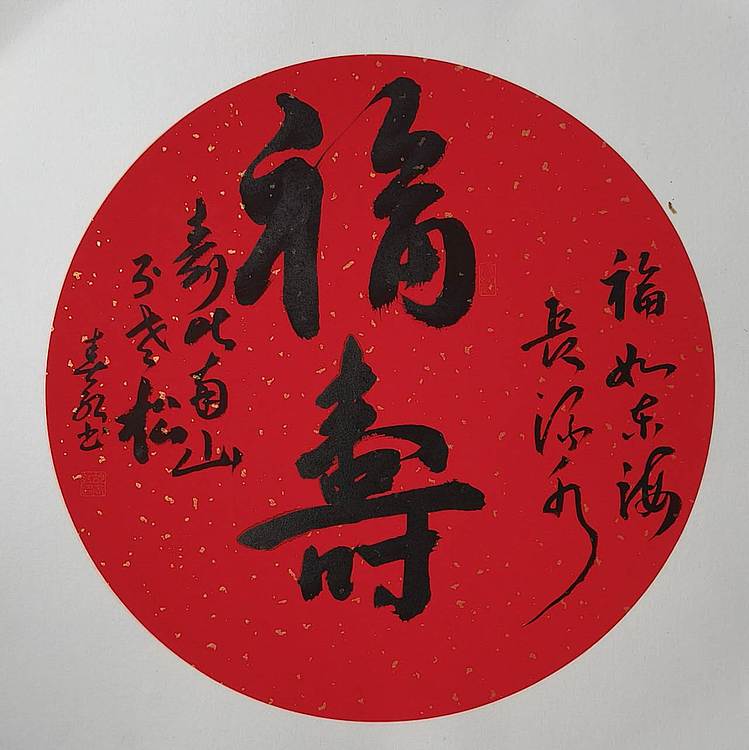 福如东海
長流水
福
壽
寿比南山
不老松
书